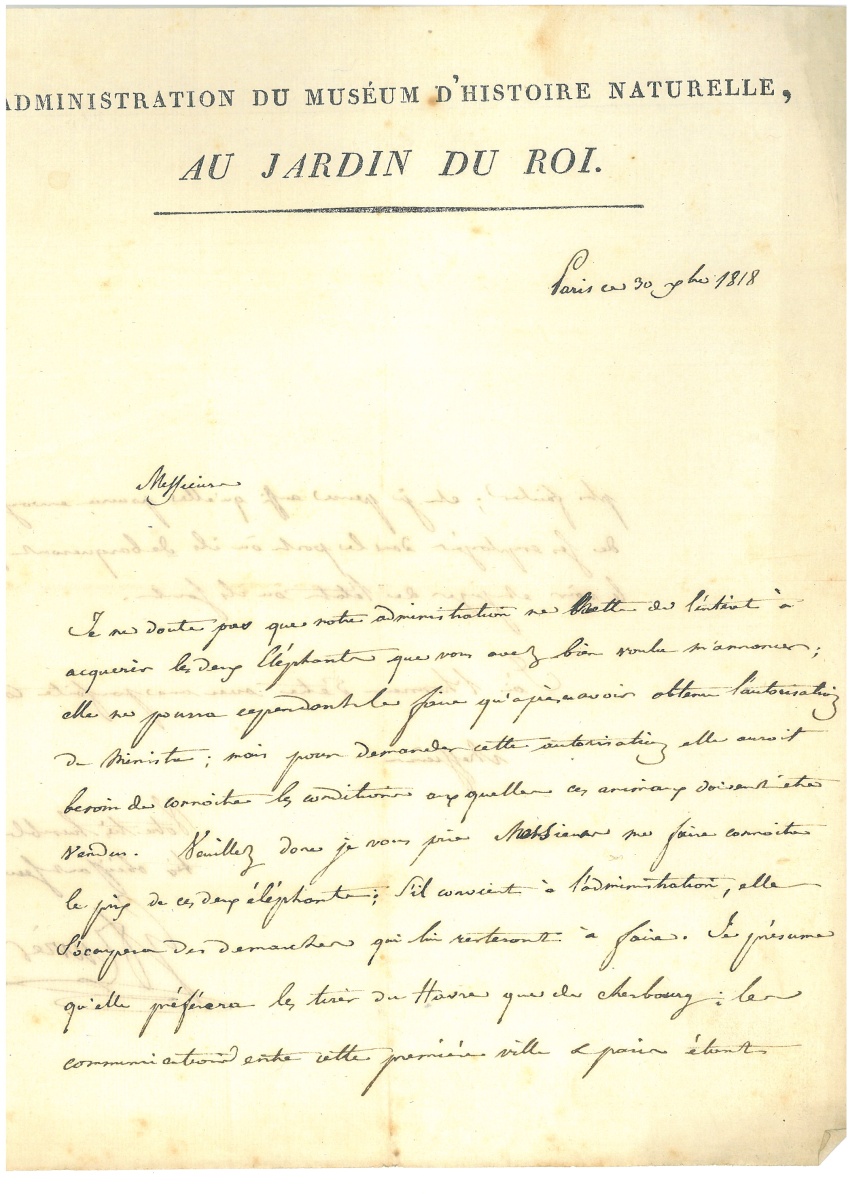 ADMINISTRATION DU MUSÉUM D'HISTOIRE NATURELLE,
AU JARDIN DU ROI.
Paris ce 30 xbre 1818
Messieurs
Je ne doute pas que notre administration ne mette de l'intéret à
acquerir les deux Eléphants que vous avez bien voulu m'annoncer;
elle ne pourra cependant le faire qu'après avoir obtenu l'autorisation
du Ministre; mais pour demander cette autorisation elle auroit
besoin de connoitre les conditions auxquelles ces animaux doivent être
vendus. Veuillez donc je vous prie Messieurs me faire connoitre
le prix de ces deux éléphants; s'il convient à l'administration, elle
s'occupera des demarches qui lui resteront à faire. Je présume
qu'elle préférera les tirer du Havre que de cherbourg; les
communications entre cette première ville & paris étant